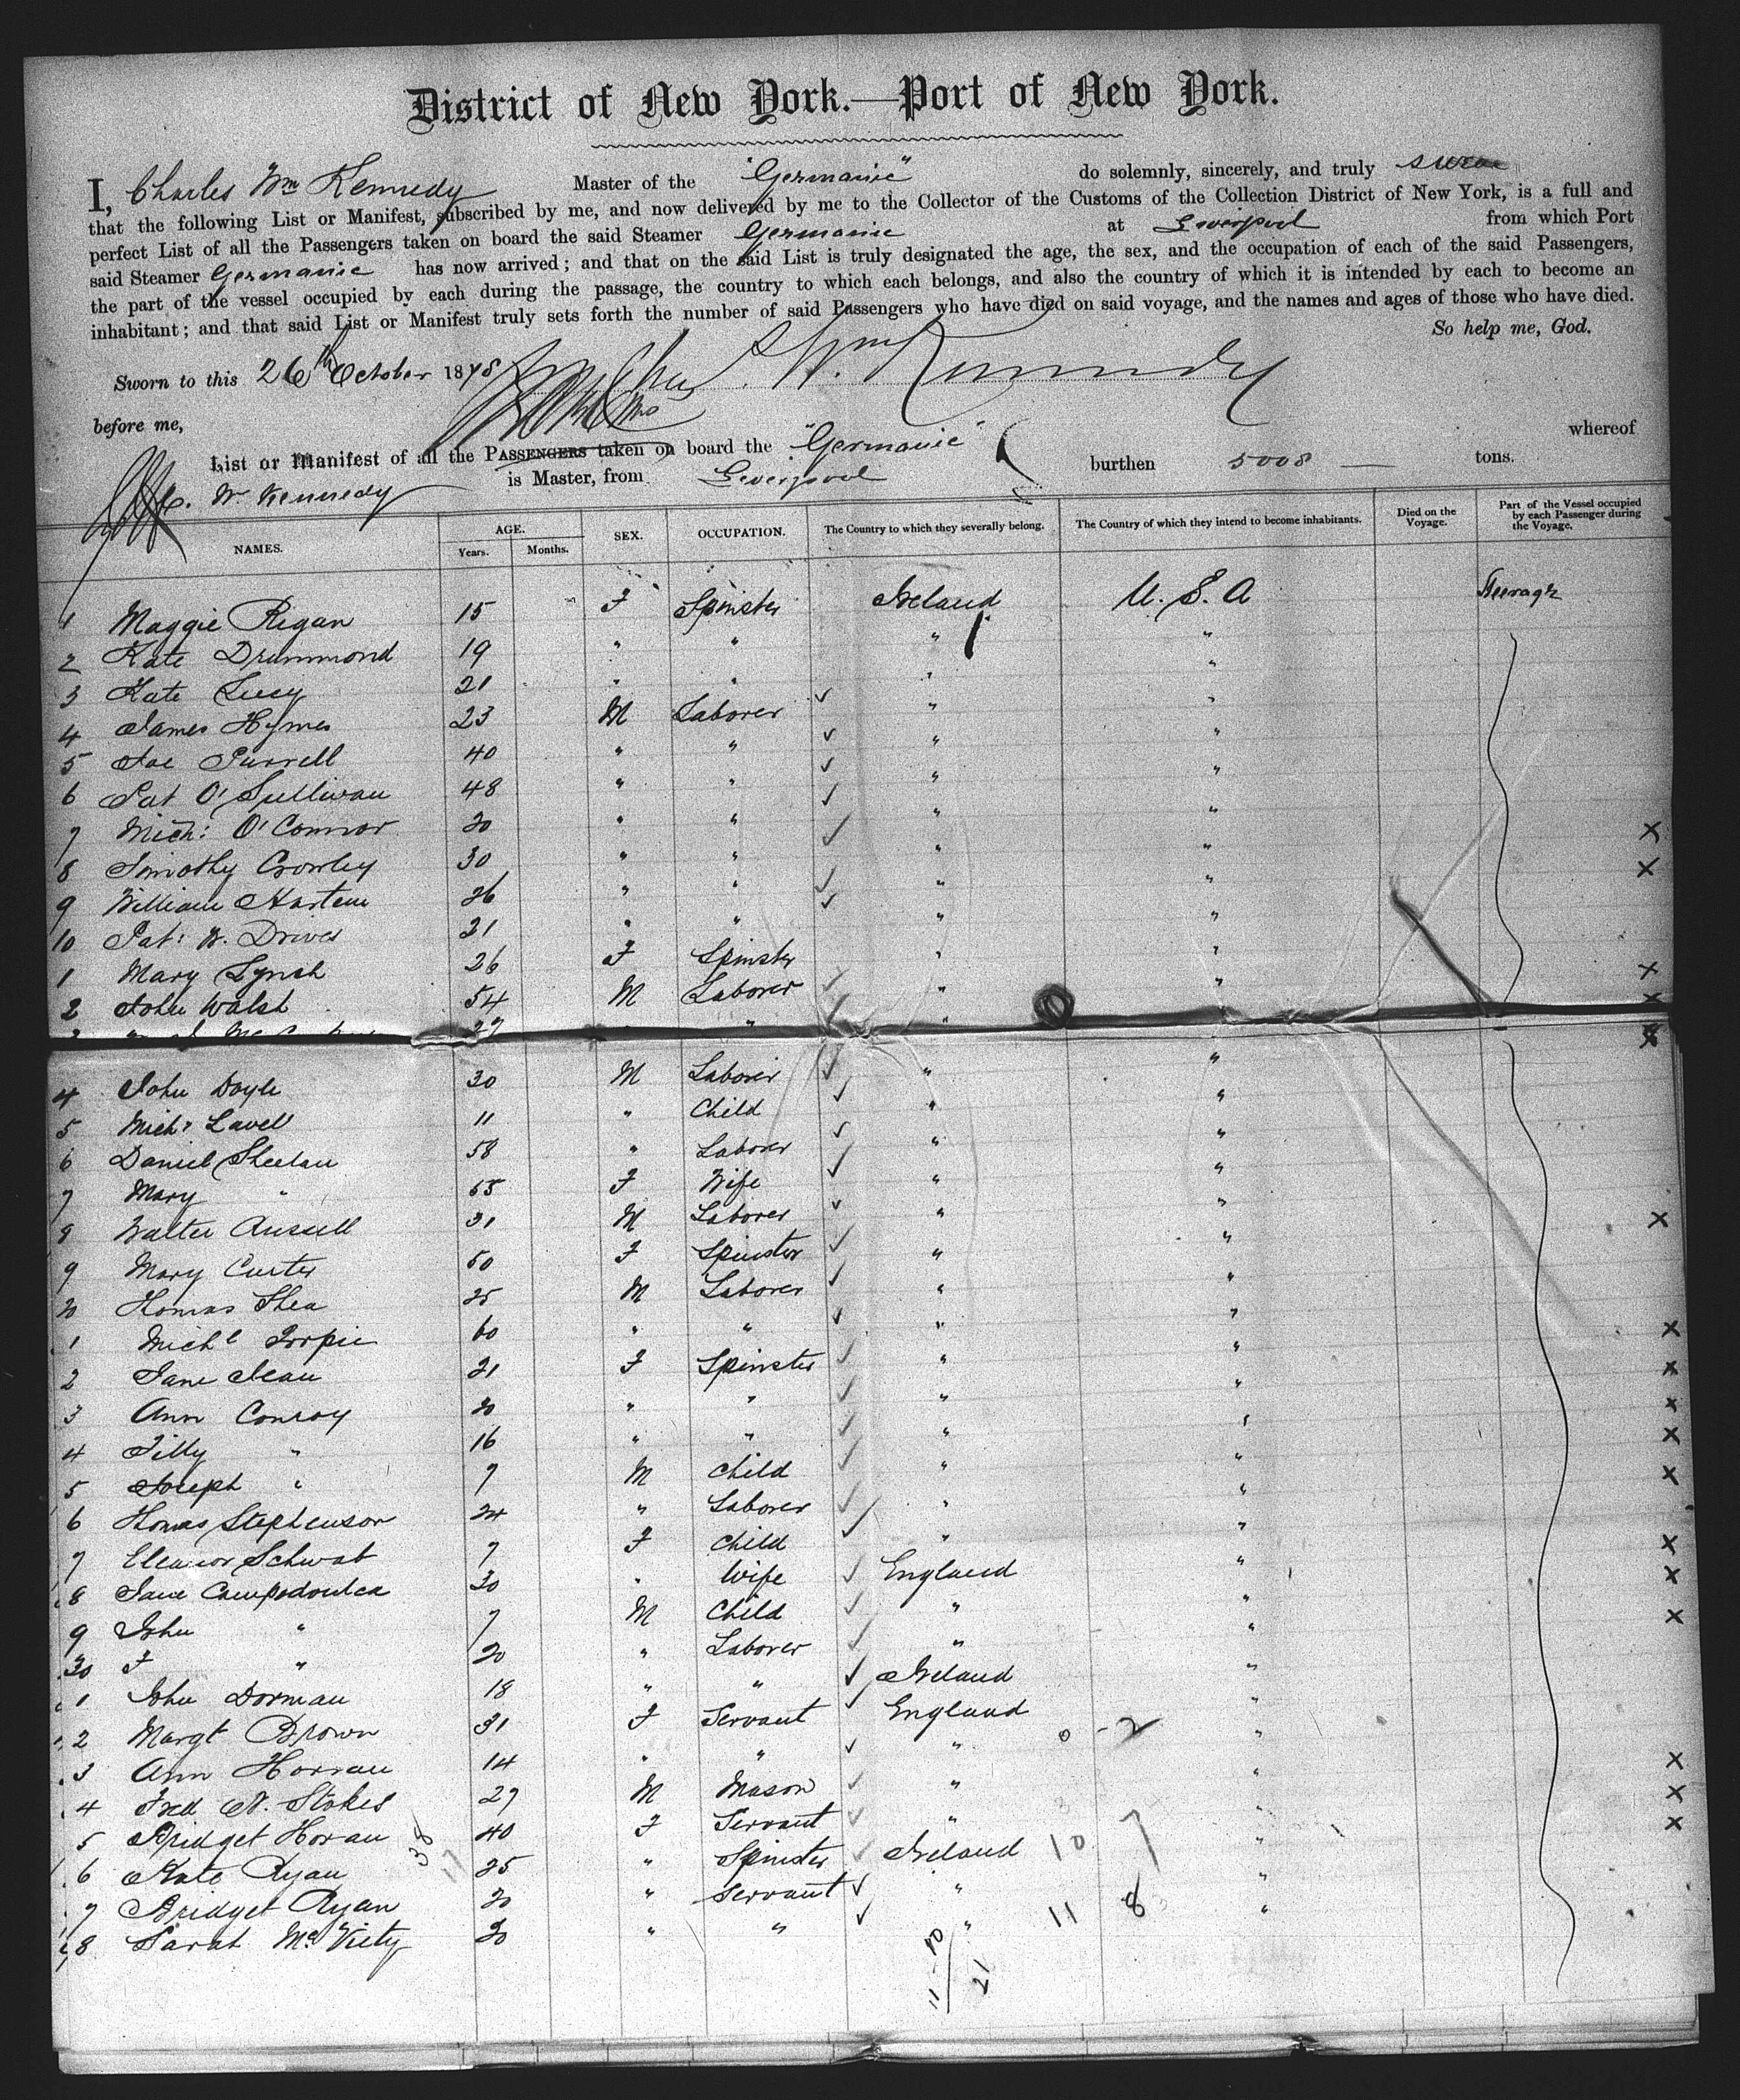 District of New York.—Port of New York.
I, Charles Wm Kennedy Master of the "Germanic" do solemnly, sincerely, and truly swear
that the following List or Manifest, subscribed by me, and now delivered by me to the Collector of the Customs of the Collection District of New York, is a full and
perfect List of all the Passengers taken on board the said Steamer Germanic at Liverpool from which Port
said Steamer Germanic has now arrived; and that on the said List is truly designated the age, the sex, and the occupation of each of the said Passengers,
the part of the vessel occupied by each during the passage, the country to which each belongs, and also the country of which it is intended by each to become an
inhabitant; and that said List or Manifest truly sets forth the number of said Passengers who have died on said voyage, and the names and ages of those who have died.
So help me, God.
Sworn to this 26th October 1878 Chas. Wm Kennedy
before me,
List or Manifest of all the PASSENGERS taken on board the "Germanic" whereof
C. W. Kennedy is Master, from Liverpool burthen 5008 tons.
NAMES. AGE. Years. Months. SEX. OCCUPATION. The Country to which they severally belong. The Country of which they intend to become inhabitants. Died on the Voyage. Part of the Vessel occupied by each Passenger during the Voyage.
1 Maggie Rigan 15 F Spinster Ireland U.S.A Steerage
2 Kate Drummond 19 " " " "
3 Kate Lucy 21 " " " "
4 James Hymes 23 M Laborer " "
5 Joe Purrell 40 " " " "
6 Pat O'Sullivan 48 " " " "
7 Mich: O'Connor 20 " " " " x
8 Timothy Crowley 30 " " " " x
9 William Harten 26 " " " "
10 Pat: W. Drives 21 " " " "
1 Mary Lynch 26 F Spinster " " x
2 John Walsh 54 M Laborer " " x
27 " " x
4 John Doyle 30 M Laborer " "
5 Michl Lavell 11 " Child " "
6 Daniel Sheehan 58 " Laborer " "
7 Mary " 55 F Wife " "
8 Walter Russell 31 M Laborer " " x
9 Mary Curtis 50 F Spinster " "
20 Thomas Shea 25 M Laborer " "
1 Michl 60 " " " " x
2 Jane 21 F Spinster " " x
3 Ann Conroy 20 " " " " x
4 Tilly " 16 " " " " x
5 Joseph " 7 M Child " " x
6 Thomas Stephenson 24 " Laborer " "
7 Eleanor Schwab 7 F Child " " x
8 Jane 30 " Wife England " x
9 John " 7 M Child " " x
30 F " 20 " Laborer " "
1 John Dorman 18 " " Ireland "
2 Margt Brown 31 F Servant England "
3 Ann Horran 14 " " " " x
4 Fred N. Stokes 27 M Mason " " x
5 Bridget Horan 40 F Servant " " x
6 Kate Ryan 25 " Spinster Ireland "
7 Bridget Ryan 20 " Servant " "
8 Sarah McVicty 20 " " " "
0 - 2
38
17
10 7
11 8
11 - 10
21